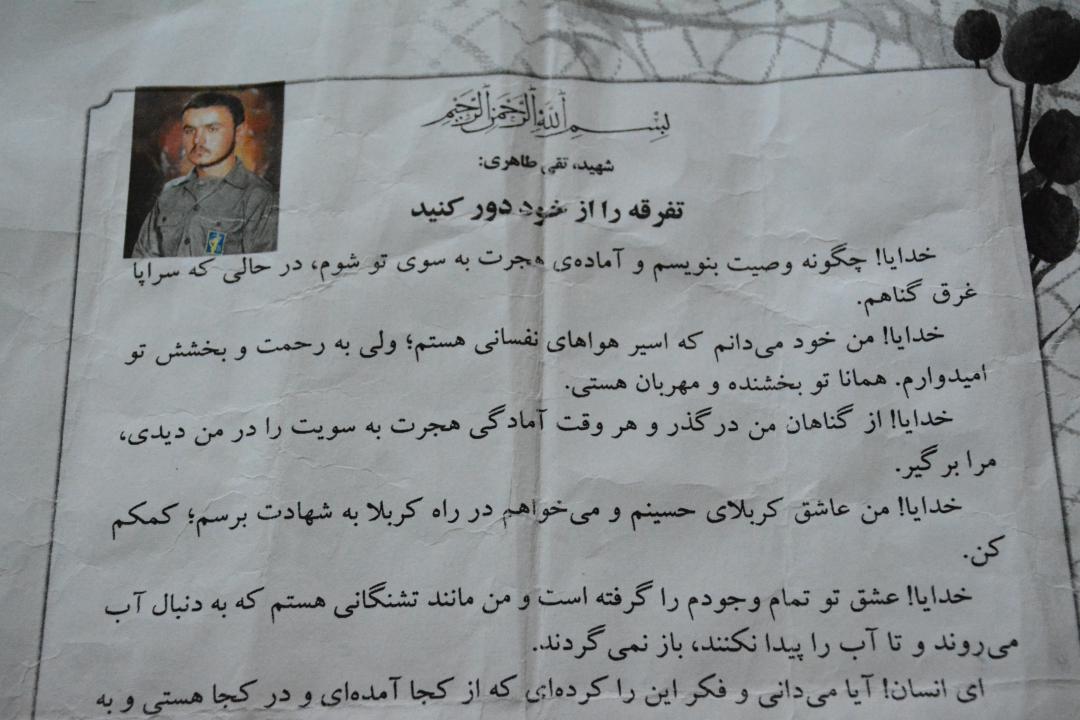 بسم الله الرحمن الرحیم
شهید، تقی طاهری:
تفرقه را از خود دور کنید
خدایا! چگونه وصیت بنویسم و آماده‌ی هجرت به سوی تو شوم، در حالی که سراپا
غرق گناهم.
خدایا! من خود می‌دانم که اسیر هواهای نفسانی هستم؛ ولی به رحمت و بخشش تو
امیدوارم. همانا تو بخشنده و مهربان هستی.
خدایا! از گناهان من در گذر و هر وقت آمادگی هجرت به سویت را در من دیدی،
مرا بر گیر.
خدایا! من عاشق کربلای حسینم و می‌خواهم در راه کربلا به شهادت برسم؛ کمکم
کن.
خدایا! عشق تو تمام وجودم را گرفته است و من مانند تشنگانی هستم که به دنبال آب
می‌روند و تا آب را پیدا نکنند، باز نمی‌گردند.
ای انسان! آیا می‌دانی و فکر این را کرده‌ای که از کجا آمده‌ای و در کجا هستی و به